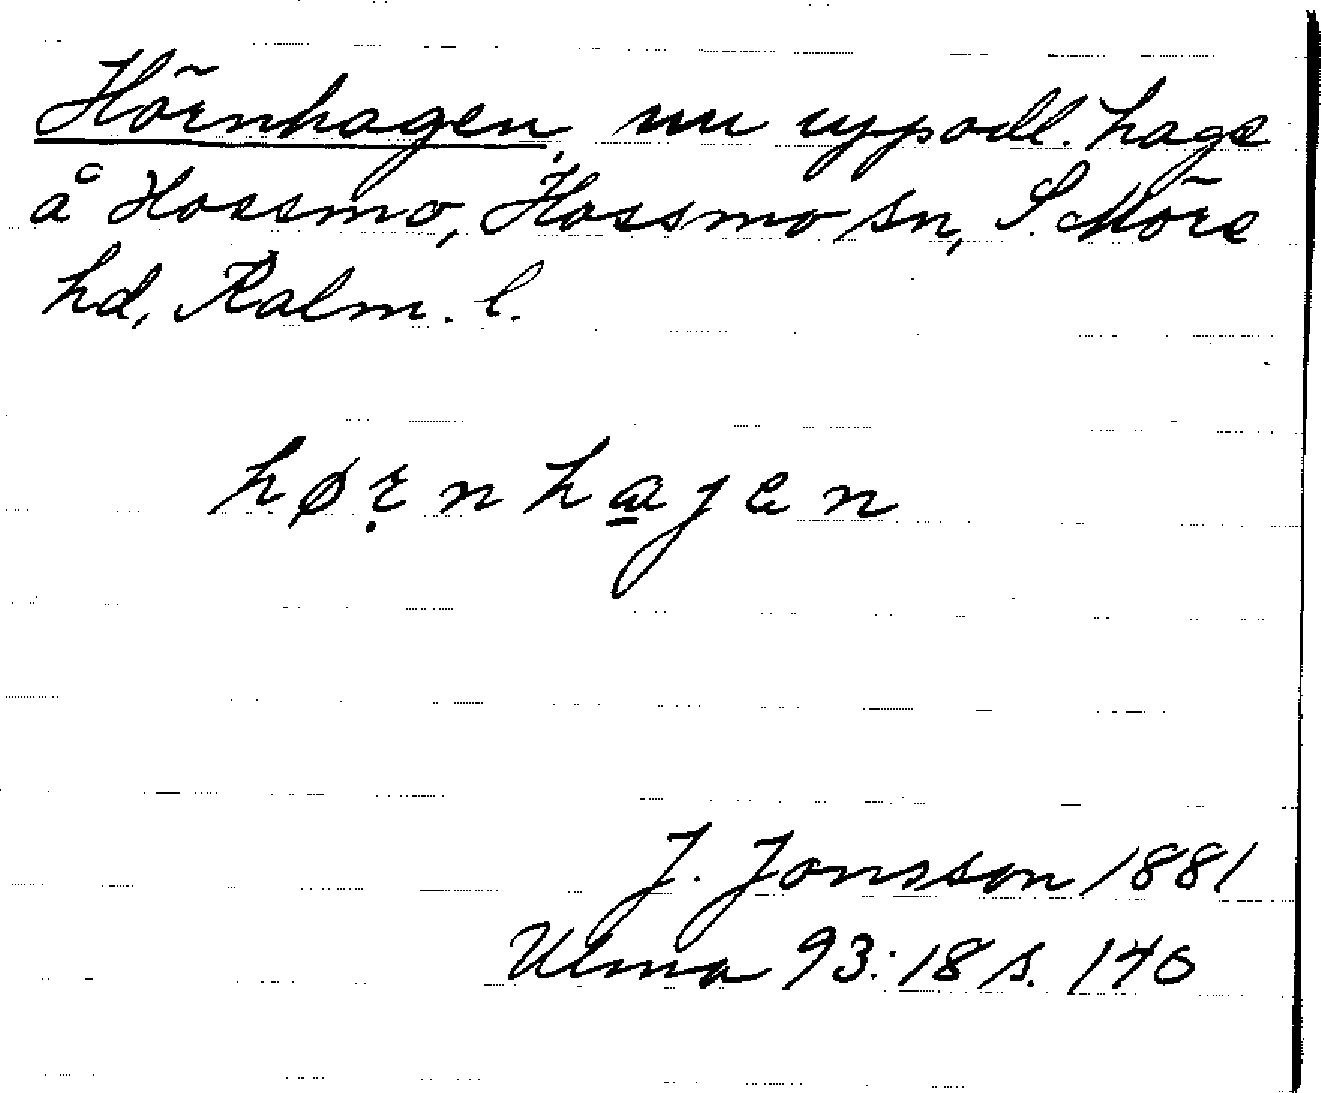 Hörnhagen, nu uppodl. hage
å Hossmo, Hossmo sn, S. Möre
hd, Kalm. l.
hørnhagen
J. Jonsson 1881
Ulma 93:18 s. 140